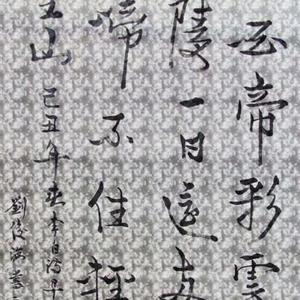 白帝彩雲
陵一日還
啼不住輕
重山 己丑年春李白詩
劉俊